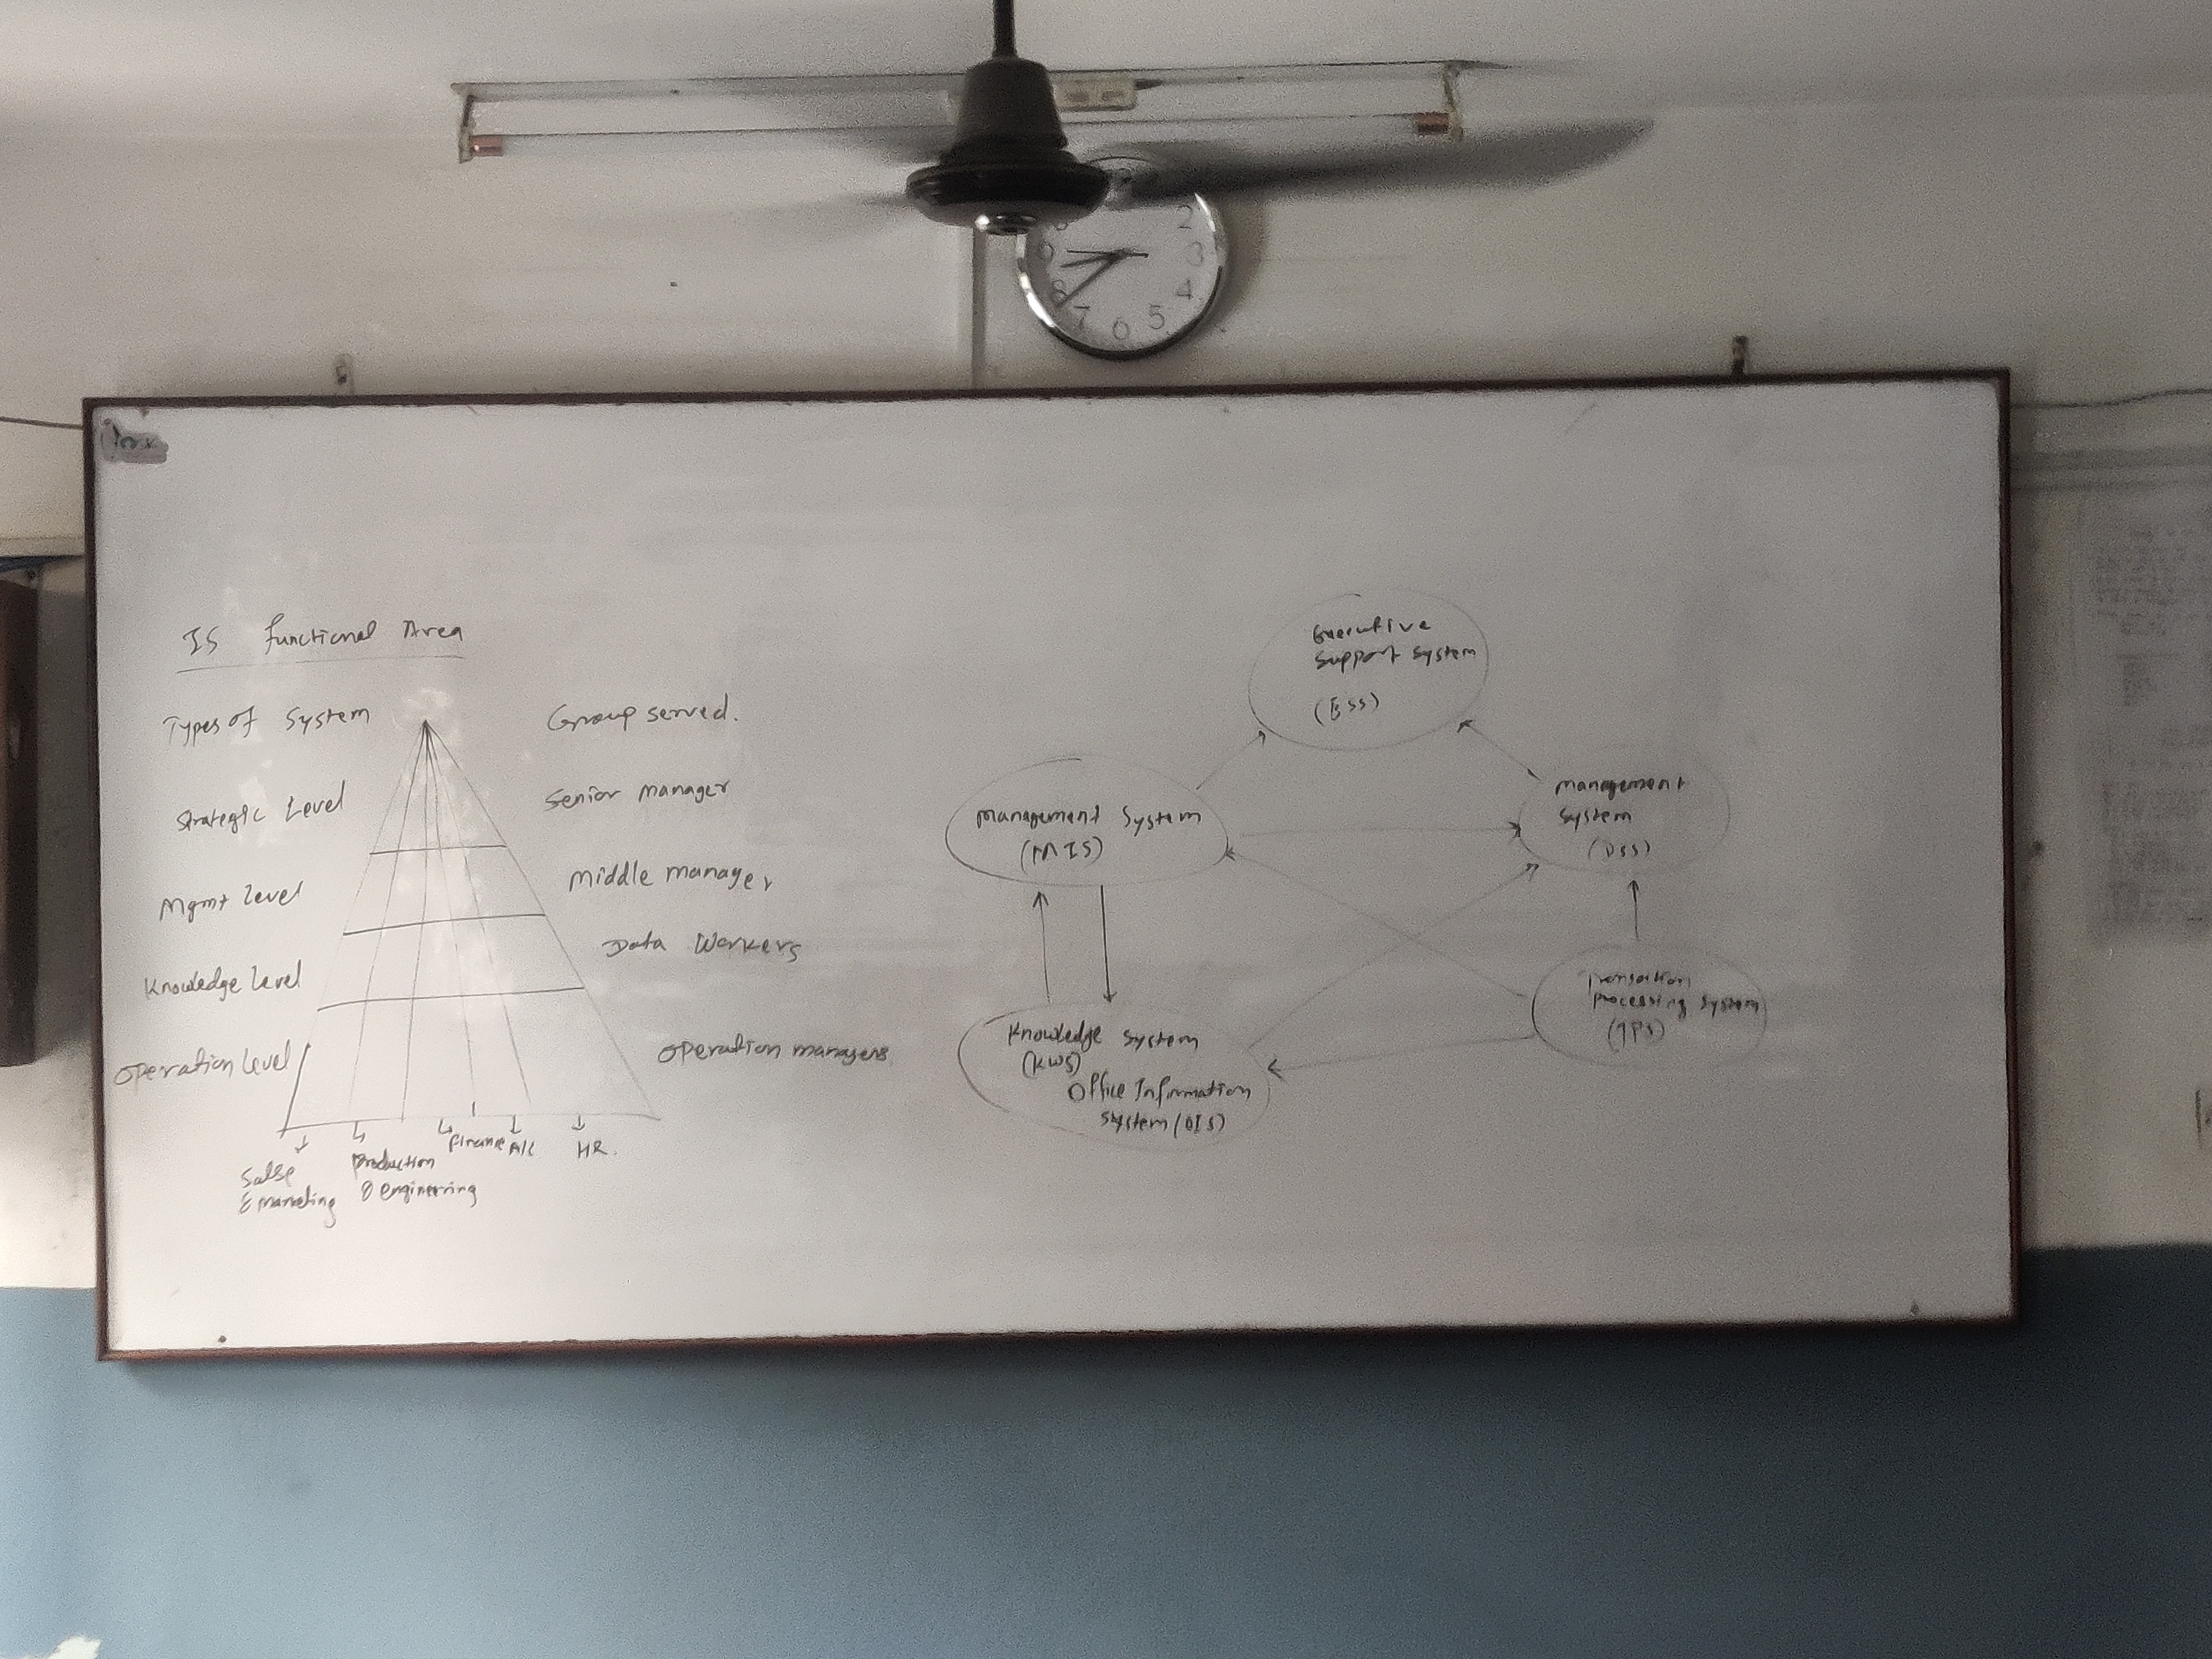 IS Functional Area
Types of System
Group served.
Strategic Level
Senior manager
Mgmt level
Middle manager
Knowledge level
Data Workers
Operation level
Operation managers
Salse
& marketing
Production
& engineering
Finance
A/c
HR.
Executive
Support System
(ESS)
Management System
(MIS)
Management
System
(DSS)
Knowledge System
(KWS)
Office Information
System (OIS)
Transaction
Processing System
(TPS)
2
3
4
5
6
7
8
9